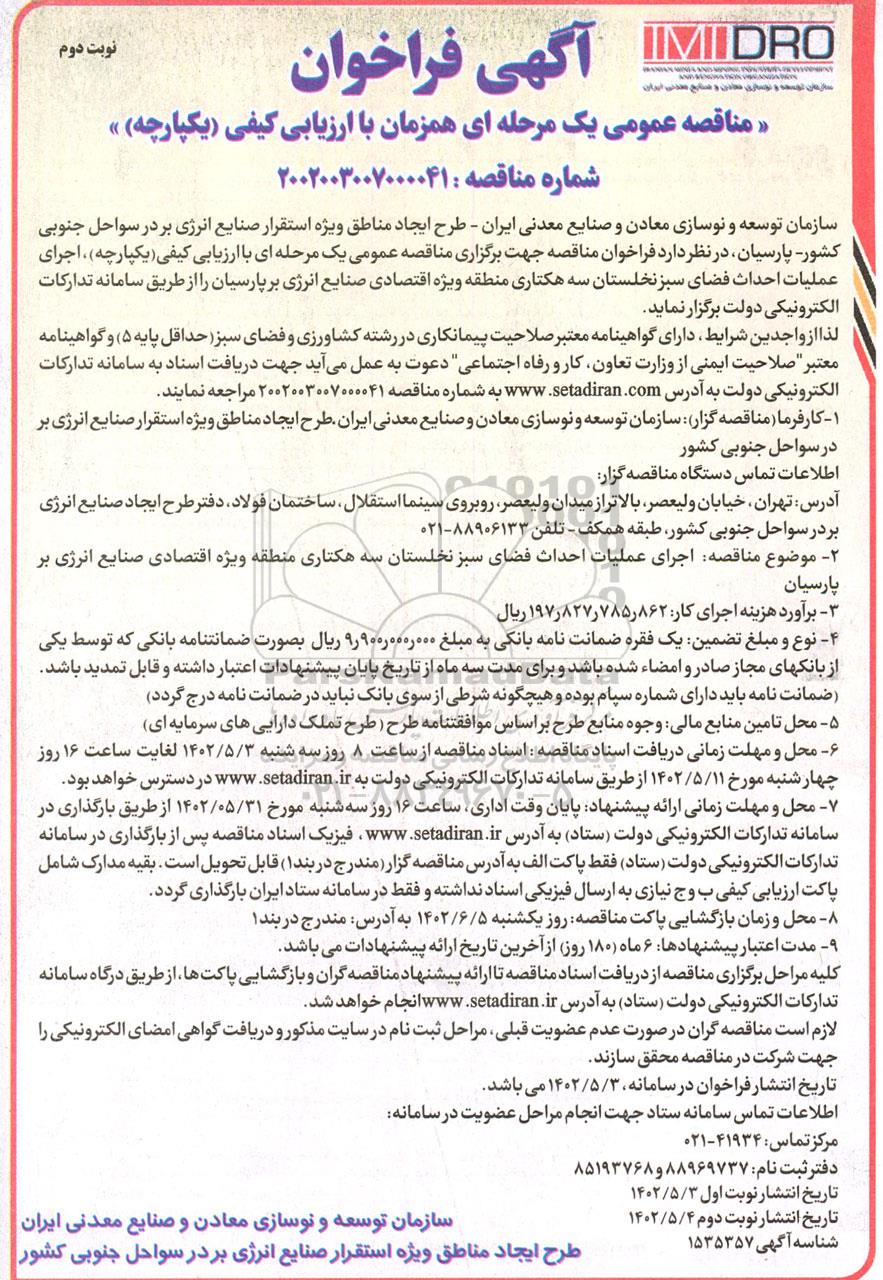 نوبت دوم
آگهی فراخوان
IMIDRO
IRANIAN MINES AND MINING INDUSTRIES DEVELOPMENT
AND RENOVATION ORGANIZATION
سازمان توسعه و نوسازی معادن و صنایع معدنی ایران
« مناقصه عمومی یک مرحله ای همزمان با ارزیابی کیفی (یکپارچه) »
شماره مناقصه : ۲۰۰۲۰۰۳۰۰۷۰۰۰۰۴۱
سازمان توسعه و نوسازی معادن و صنایع معدنی ایران - طرح ایجاد مناطق ویژه استقرار صنایع انرژی بر در سواحل جنوبی
کشور- پارسیان ، در نظر دارد فراخوان مناقصه جهت برگزاری مناقصه عمومی یک مرحله ای با ارزیابی کیفی(یکپارچه) ، اجرای
عملیات احداث فضای سبز نخلستان سه هکتاری منطقه ویژه اقتصادی صنایع انرژی بر پارسیان را از طریق سامانه تدارکات
الکترونیکی دولت برگزار نماید.
لذا از واجدین شرایط ، دارای گواهینامه معتبر صلاحیت پیمانکاری در رشته کشاورزی و فضای سبز(حداقل پایه ۵) و گواهینامه
معتبر"صلاحیت ایمنی از وزارت تعاون ، کار و رفاه اجتماعی" دعوت به عمل می‌آید جهت دریافت اسناد به سامانه تدارکات
الکترونیکی دولت به آدرس www.setadiran.com به شماره مناقصه ۲۰۰۲۰۰۳۰۰۷۰۰۰۰۴۱ مراجعه نمایند.
۱-کارفرما(مناقصه گزار): سازمان توسعه و نوسازی معادن و صنایع معدنی ایران ،طرح ایجاد مناطق ویژه استقرار صنایع انرژی بر
در سواحل جنوبی کشور
اطلاعات تماس دستگاه مناقصه گزار:
آدرس: تهران ، خیابان ولیعصر، بالاتر از میدان ولیعصر، روبروی سینما استقلال ، ساختمان فولاد، دفتر طرح ایجاد صنایع انرژی
بر در سواحل جنوبی کشور، طبقه همکف - تلفن ۸۸۹۰۶۱۳۳-۰۲۱
۲- موضوع مناقصه: اجرای عملیات احداث فضای سبز نخلستان سه هکتاری منطقه ویژه اقتصادی صنایع انرژی بر
پارسیان
۳- برآورد هزینه اجرای کار: ۱۹۷٫۸۲۷٫۷۸۵٫۸۶۲ ریال
۴- نوع و مبلغ تضمین: یک فقره ضمانت نامه بانکی به مبلغ ۹٫۹۰۰٫۰۰۰٫۰۰۰ ریال بصورت ضمانتنامه بانکی که توسط یکی
از بانکهای مجاز صادر و امضاء شده باشد و برای مدت سه ماه از تاریخ پایان پیشنهادات اعتبار داشته و قابل تمدید باشد.
(ضمانت نامه باید دارای شماره سپام بوده و هیچگونه شرطی از سوی بانک نباید در ضمانت نامه درج گردد)
۵- محل تامین منابع مالی: وجوه منابع طرح بر اساس موافقتنامه طرح ( طرح تملک دارایی های سرمایه ای)
۶- محل و مهلت زمانی دریافت اسناد مناقصه : اسناد مناقصه از ساعت ۸ روز سه شنبه ۱۴۰۲/۵/۳ لغایت ساعت ۱۶ روز
چهارشنبه مورخ ۱۴۰۲/۵/۱۱ از طریق سامانه تدارکات الکترونیکی دولت به www.setadiran.ir در دسترس خواهد بود.
۷- محل و مهلت زمانی ارائه پیشنهاد: پایان وقت اداری، ساعت ۱۶ روز سه‌شنبه مورخ ۱۴۰۲/۰۵/۳۱ از طریق بارگذاری در
سامانه تدارکات الکترونیکی دولت (ستاد) به آدرس www.setadiran.ir ، فیزیک اسناد مناقصه پس از بارگذاری در سامانه
تدارکات الکترونیکی دولت(ستاد) فقط پاکت الف به آدرس مناقصه گزار(مندرج در بند۱) قابل تحویل است . بقیه مدارک شامل
پاکت ارزیابی کیفی ب و ج نیازی به ارسال فیزیکی اسناد نداشته و فقط در سامانه ستاد ایران بارگذاری گردد.
۸- محل و زمان بازگشایی پاکت مناقصه: روز یکشنبه ۱۴۰۲/۶/۵ به آدرس: مندرج در بند۱
۹- مدت اعتبار پیشنهادها: ۶ ماه (۱۸۰ روز) از آخرین تاریخ ارائه پیشنهادات می باشد.
کلیه مراحل برگزاری مناقصه از دریافت اسناد مناقصه تا ارائه پیشنهاد مناقصه گران و بازگشایی پاکت‌ها ، از طریق درگاه سامانه
تدارکات الکترونیکی دولت (ستاد) به آدرس www.setadiran.ir انجام خواهد شد.
لازم است مناقصه گران در صورت عدم عضویت قبلی ، مراحل ثبت نام در سایت مذکور و دریافت گواهی امضای الکترونیکی را
جهت شرکت در مناقصه محقق سازند.
تاریخ انتشار فراخوان در سامانه ، ۱۴۰۲/۵/۳ می باشد.
اطلاعات تماس سامانه ستاد جهت انجام مراحل عضویت در سامانه:
مرکز تماس: ۴۱۹۳۴-۰۲۱
دفتر ثبت نام: ۸۸۹۶۹۷۳۷ و ۸۵۱۹۳۷۶۸
تاریخ انتشار نوبت اول ۱۴۰۲/۵/۳
تاریخ انتشار نوبت دوم ۱۴۰۲/۵/۴
شناسه آگهی ۱۵۳۵۳۵۷
سازمان توسعه و نوسازی معادن و صنایع معدنی ایران
طرح ایجاد مناطق ویژه استقرار صنایع انرژی بر در سواحل جنوبی کشور